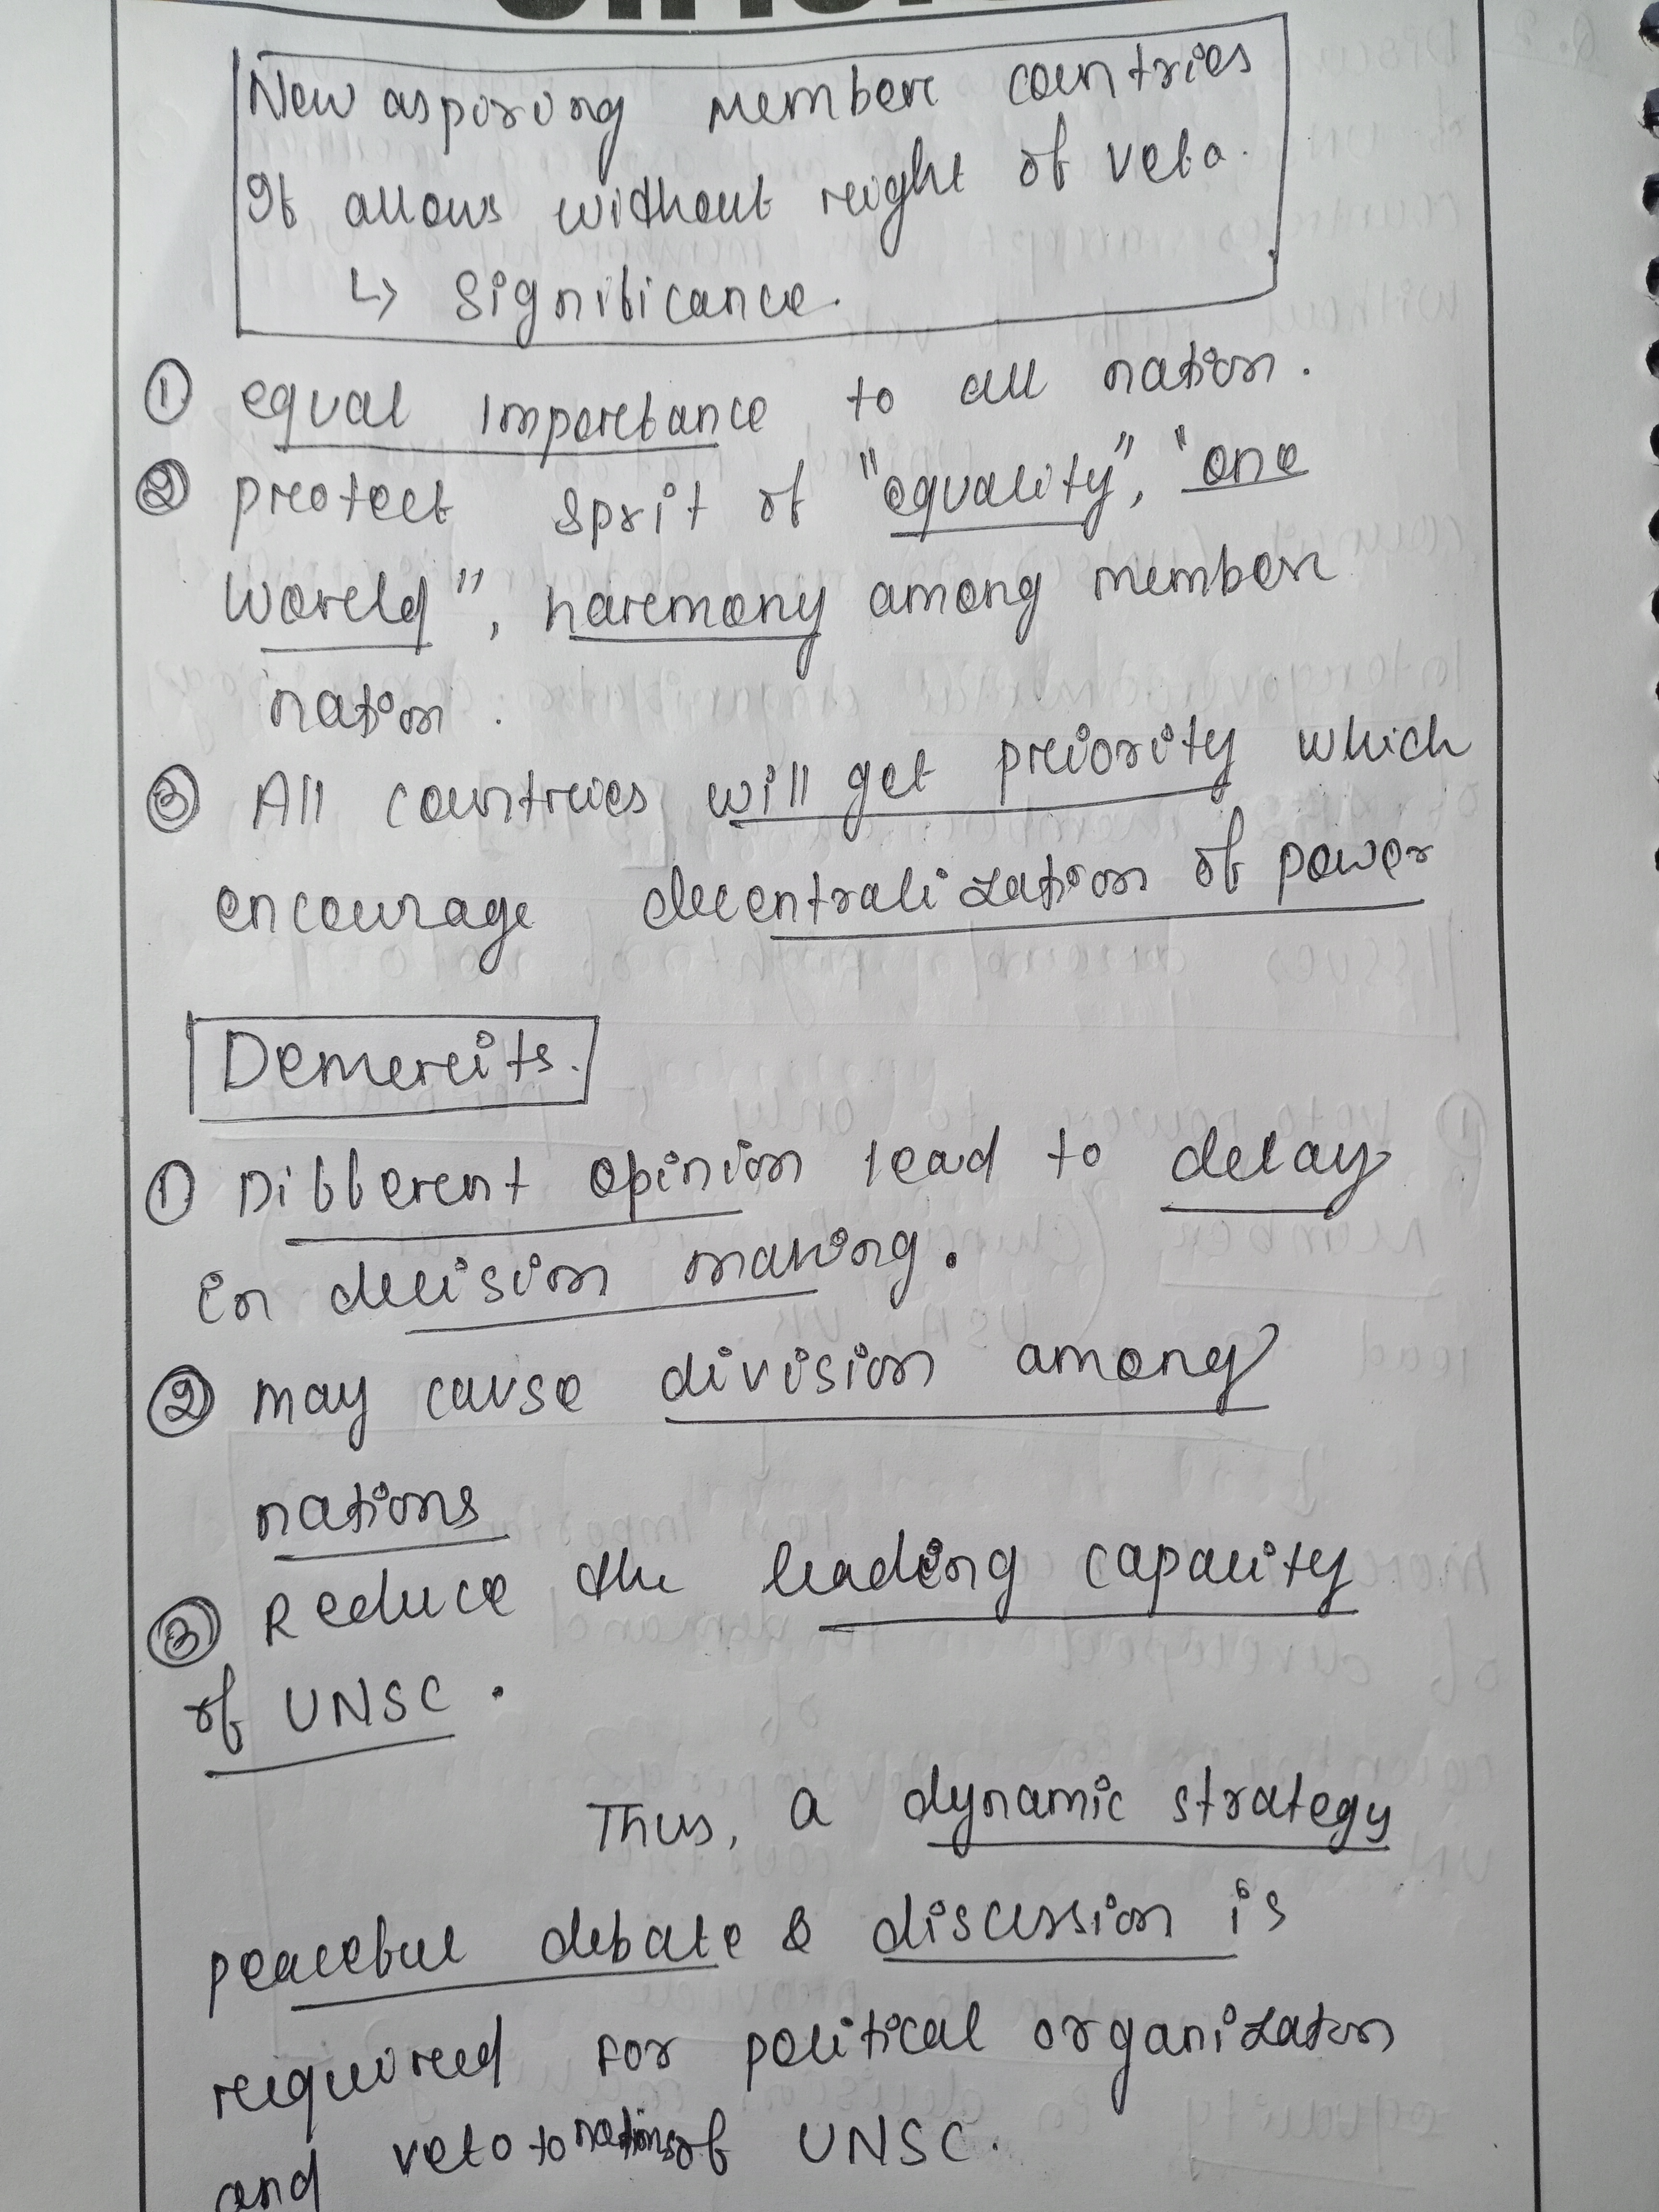 New aspiring member countries
It allows without right of veto.
↳ Significance.
① equal importance to all nation.
② protect sprit of "equality", "one
world", harmony among member
nation.
③ All countries will get priority which
encourage decentralization of power
Demerits.
① Different opinion lead to delay
in decision making.
② may cause division among
nations
③ Reduce the leading capacity
of UNSC.
Thus, a dynamic strategy
peaceful debate & discussion is
required for political organizaton
and veto to nations of UNSC.